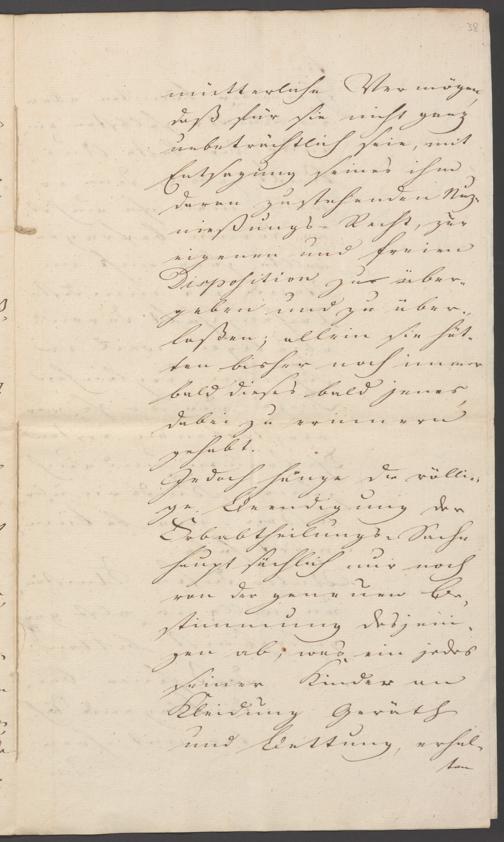 38
mütterliche Vermögen,
daß für sie nicht ganz
unbeträchtlich seie, mit
Entsagung seines ihm
daran zustehenden Nuz-
nießungs-Recht, zur
eigenen und freien
Disposition zu über-
geben und zu über-
laßen; allein sie hät-
ten bisher noch immer
bald dieses bald jenes,
dabei zu erinnern
gehabt.
Jedoch hänge die völli-
ge Beendigung der
Erbabtheilungs-Sache
hauptsächlich nur noch
von der genauen Be-
stimmung desjeni-
gen ab, was ein jedes
seiner Kinder an
Kleidung Geräth
und Bettung, erhal-
ten